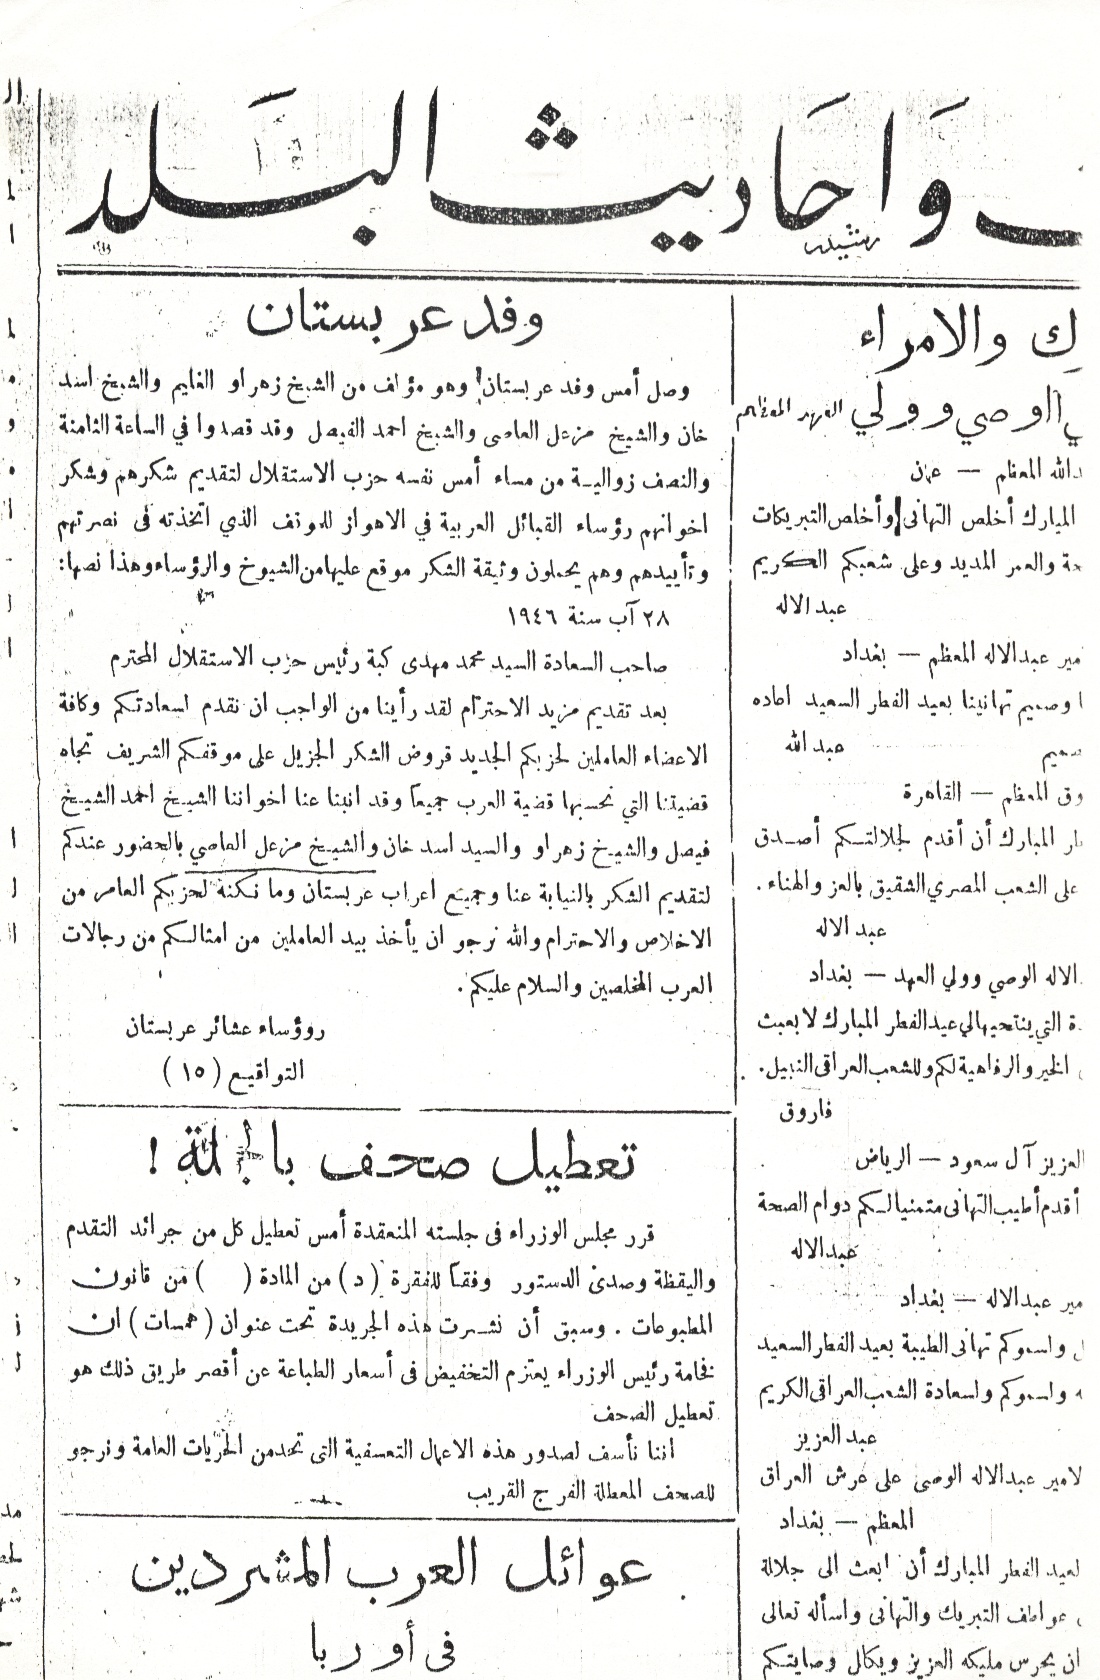 واحاديث البلد
رشيد
ك والامراء
الوصي وولي العهد المعظم
دالله المعظم — عمان
المبارك أخلص التهانى وأخلص التبريكات
والعمر المديد وعلى شعبكم الكريم
عبد الاله
مير عبدالاله المعظم — بغداد
وصميم تهانينا بعيد الفطر السعيد اعاده
صميم
عبد الله
وق المعظم — القاهرة
المبارك أن أقدم لجلالتكم أصدق
على الشعب المصري الشقيق بالعز والهناء .
عبد الاله
الاله الوصي وولي العهد — بغداد
ة التي ينتحيها لي عيد الفطر المبارك لابعث
الخير والرفاهية لكم وللشعب العراقى النبيل .
فاروق
لعزيز آل سعود — الرياض
أقدم أطيب التهانى متمنيا لكم دوام الصحة
عبدالاله
مير عبدالاله — بغداد
واسموكم تهانى الطيبة بعيد الفطر السعيد
واسموكم واسعادة الشعب العراقى الكريم
عبد العزيز
لامير عبدالاله الوصى على عرش العراق
المعظم — بغداد
لعيد الفطر المبارك أن ابعث الى جلالة
عواطف التبريك والتهانى واسأله تعالى
ان يحرس مليكه العزيز ويكال وصايتكم
وفد عربستان
وصل أمس وفد عربستان وهو مؤلف من الشيخ زهراو الغايم والشيخ اسد
خان والشيخ مزعل العاصى والشيخ احمد الفيصل وقد قصدوا في الساعة الثامنة
والنصف زوالية من مساء أمس نفسه حزب الاستقلال لتقديم شكرهم وشكر
اخوانهم رؤساء القبائل العربية في الاهواز للموقف الذي اتخذته فى نصرتهم
وتأييدهم وهم يحملون وثيقة الشكر موقع عليها من الشيوخ والرؤساء وهذا نصها:
٢٨ آب سنة ١٩٤٦
صاحب السعادة السيد محمد مهدى كبة رئيس حزب الاستقلال المحترم
بعد تقديم مزيد الاحترام لقد رأينا من الواجب ان نقدم اسعادتكم وكافة
الاعضاء العاملين لحزبكم الجديد قروض الشكر الجزيل على موقفكم الشريف تجاه
قضيتنا التي نحسبها قضية العرب جميعا وقد انبنا عنا اخواننا الشيخ احمد الشيخ
فيصل والشيخ زهراو والسيد اسد خان والشيخ مزعل العاصي بالحضور عندكم
لتقديم الشكر بالنيابة عنا وجميع اعراب عربستان وما نكنه لحزبكم العامر من
الاخلاص والاحترام والله نرجو ان يأخذ بيد العاملين من امثالكم من رجالات
العرب المخلصين والسلام عليكم .
روؤساء عشائر عربستان
التواقيع ( ١٥ )
تعطيل صحف بالجملة !
قرر مجلس الوزراء فى جلسته المنعقدة أمس تعطيل كل من جرائد التقدم
واليقظة وصدى الدستور وفقاً للفقرة ( د ) من المادة ( ) من قانون
المطبوعات . وسبق أن نشرت هذه الجريدة تحت عنوان ( همسات ) ان
فخامة رئيس الوزراء يعتزم التخفيض فى أسعار الطباعة عن أقصر طريق ذلك هو
تعطيل الصحف
اننا نأسف لصدور هذه الاعمال التعسفية التى تحد من الحريات العامة ونرجو
للصحف المعطلة الفرج القريب
عوائل العرب المشردين
فى أوربا